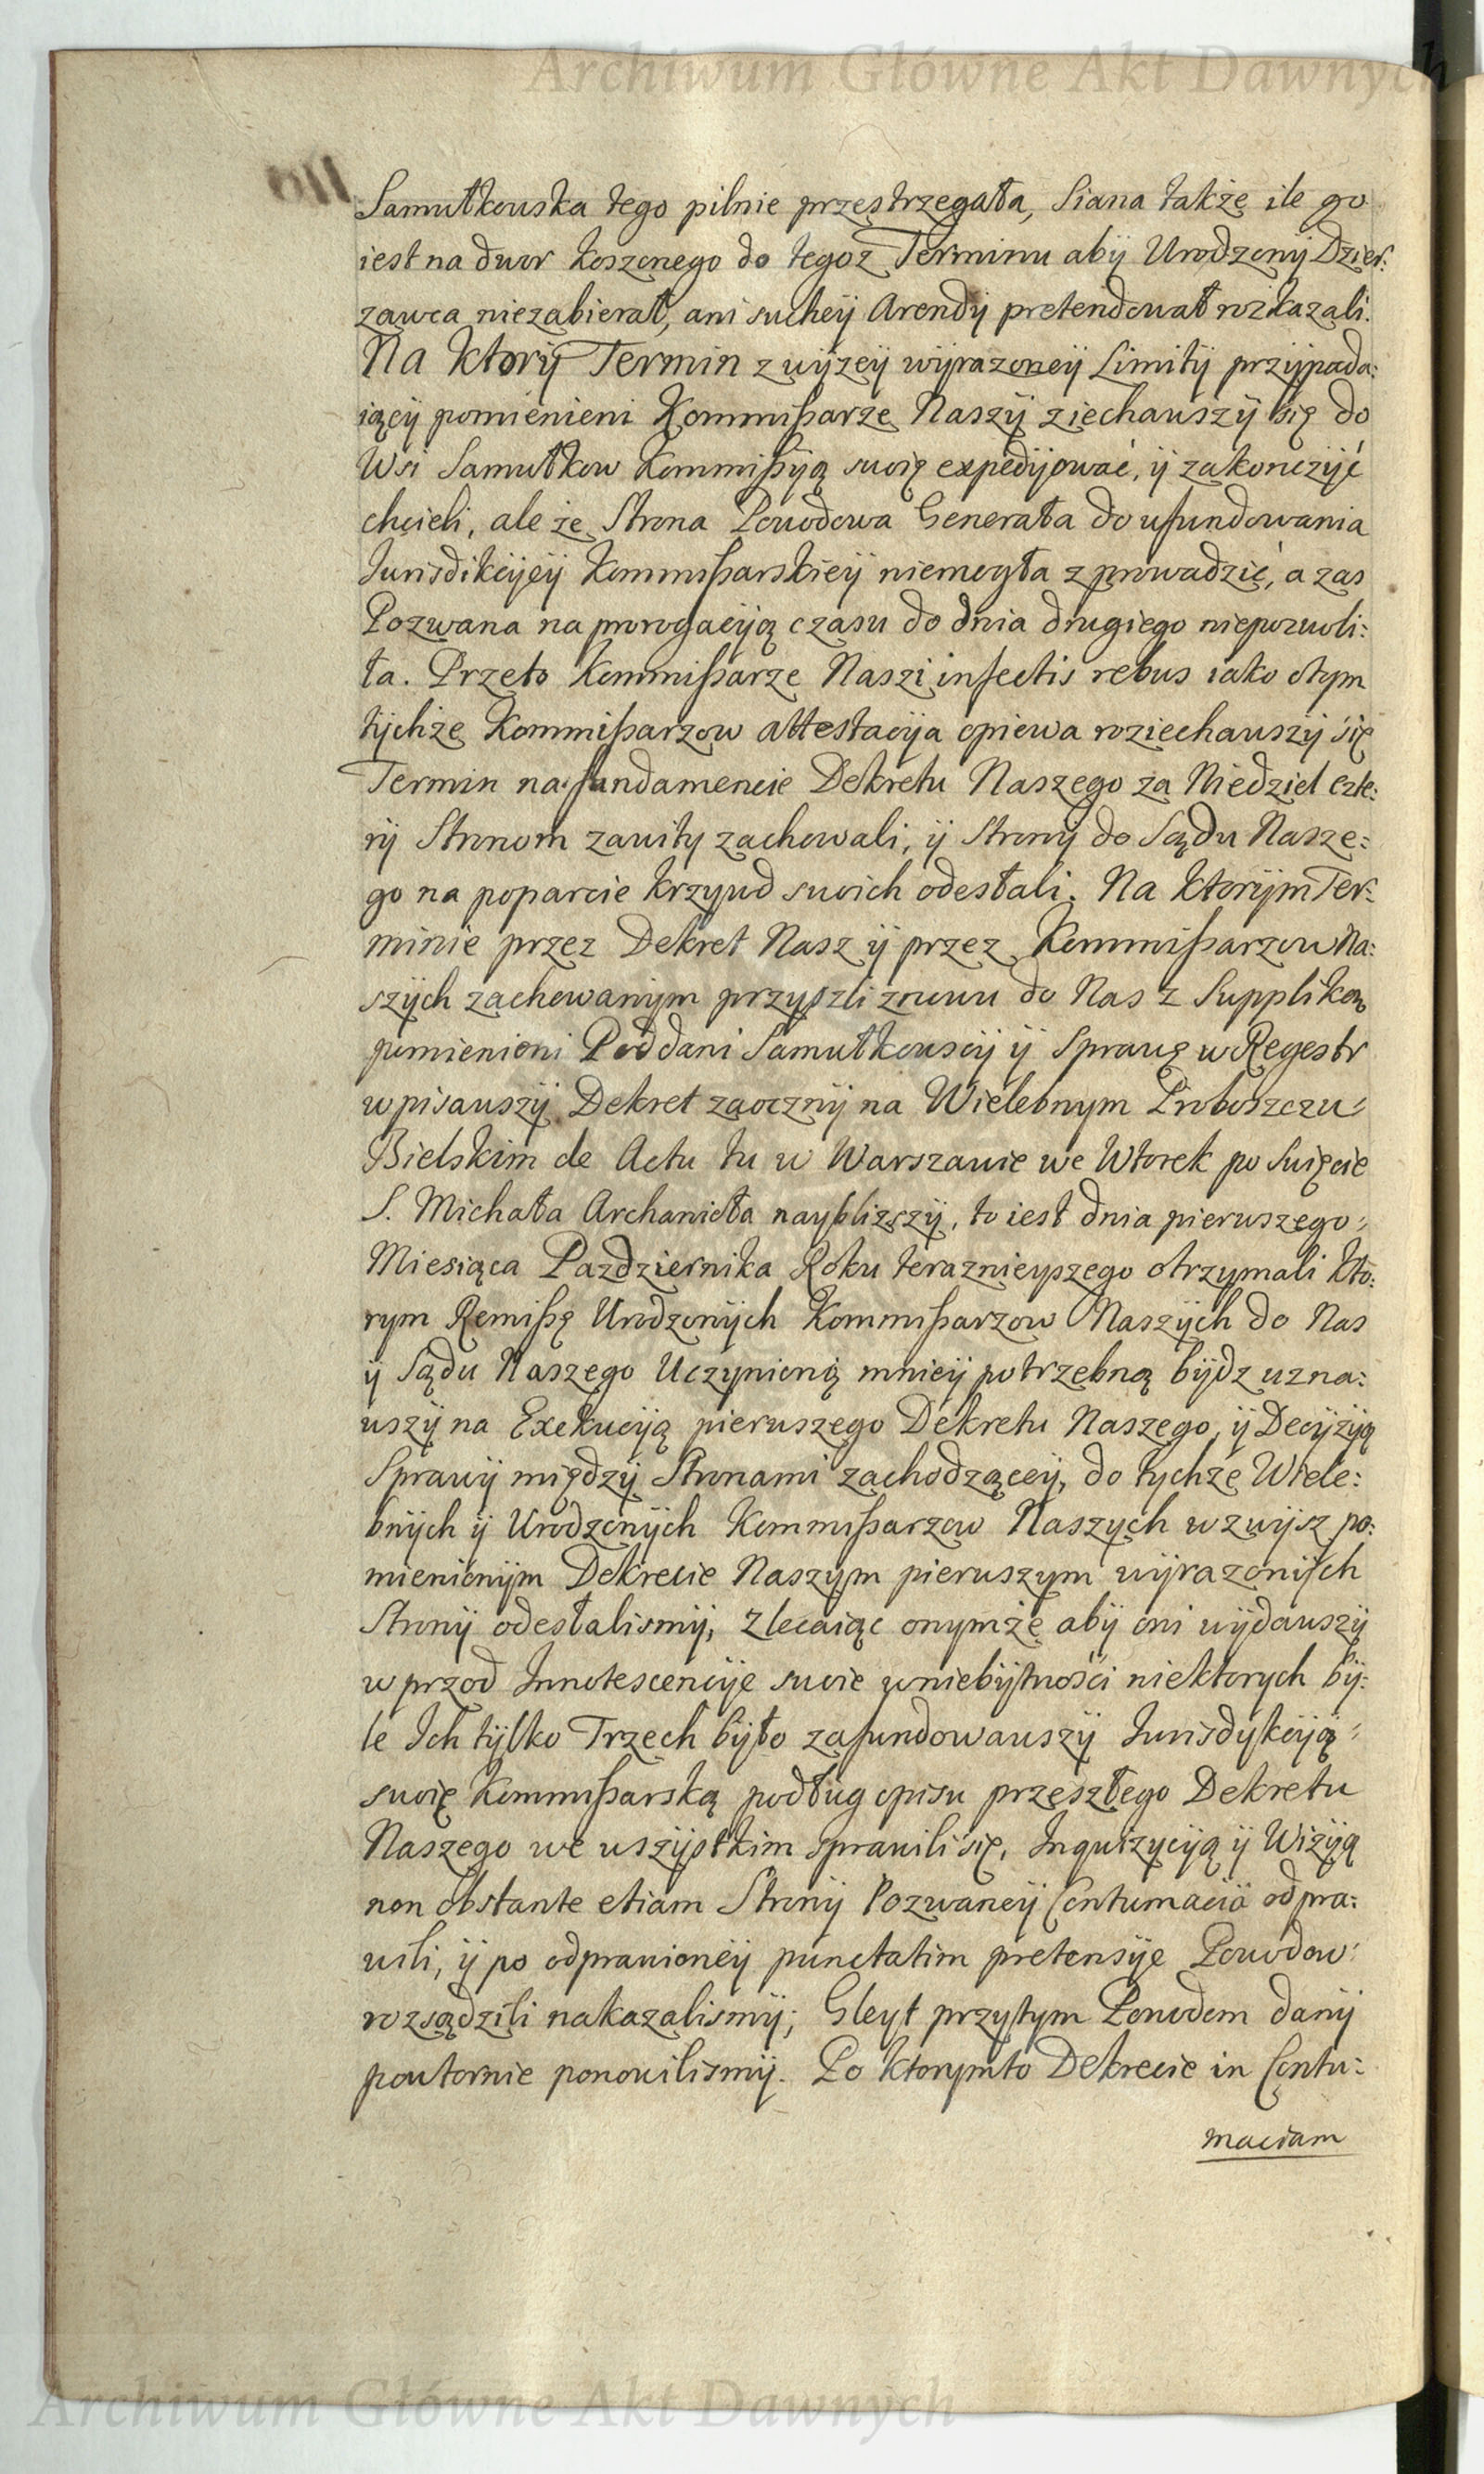 Archiwum Główne Akt Dawnych
Samułkowska tego pilnie przęstrzegała, Siana także ile go
iest na dwor koszonego do tegoz Terminu abÿ Urodzonÿ Dzier:
zawca niezabierał, ani suchęÿ Arendÿ pretendował rozkazali.
Na ktorÿ Termin z wÿzeÿ wÿrazoneÿ Limitÿ przÿpada:
iącÿ pomienieni Kommißarze Naszÿ ziechawszÿ się do
Wsi Samułkow Kommißÿą swoię expedÿjować, ÿ zakonczÿć
chcieli, ale że Strona Powodowa Generała do ufundowania
Jurisdikcÿeÿ Kommißarskieÿ niemogła zprowadzić, a zas
Pozwana na prorogacÿą czasu do dnia drugiego niepozwoli:
ła. Przeto Kommißarze Naszi infectis rebus iako otym
tÿchże Kommißarzow attestacÿa opiewa roziechawszÿ się
Termin na fundamencie Dekretu Naszego za Niedziel czte:
rÿ Stronom zawitÿ zachowali, ÿ Stronÿ do Sądu Nasze:
go na poparcie krzywd swoich odesłali. Na ktorÿm Ter:
minie przez Dekret Nasz ÿ przez Kommißarzow Na:
szÿch zachowanÿm przyszli znowu do Nas z Suppliką
pomienieni Poddani Samułkowscÿ ÿ Sprawę w Regestr
wpisawszÿ Dekret zaocznÿ na Wielebnym Proboszczu
Bielskim de Actu tu w Warszawie we Wtorek po Swięcie
S. Michała Archanioła nayblizszÿ, to iest dnia pierwszego
Miesiąca Pazdziernika Roku teraznieyszego otrzymali kto:
rym Remißę Urodzonÿch Kommißarzow Naszÿch do Nas
ÿ Sądu Naszego Uczynioną mnieÿ potrzebną bÿdz uzna:
wszÿ na Exekucÿą pierwszego Dekretu Naszego, ÿ Decÿzÿą
Sprawÿ międzÿ Stronami zachodząceÿ, do tychże Wiele:
bnÿch ÿ Urodzonÿch Kommißarzow Naszych wzwÿsz po:
mienionÿm Dekrecie Naszÿm pierwszym wÿrazonÿch
Stronÿ odesłalismÿ, Zlecaiąc onymże abÿ oni wÿdawszÿ
wprzod Innotescencÿe swoie wniebÿtności niektorych bÿ:
le Ich tÿlko Trzech bÿło zafundowawszÿ Jurisdÿkcÿą
swoię Kommißarską podług opisu przeszłego Dekretu
Naszego we wszÿstkim sprawili się, Inquizycÿą ÿ Wizÿą
non obstante etiam Stronÿ Pozwaneÿ Contumaciâ odpra:
wili, ÿ po odprawioneÿ punctatim pretensÿe Powodow
rozsądzili nakazalismÿ; Gleyt przytym Powodom danÿ
powtornie ponowilismÿ. Po ktorymto Dekrecie in Contu:
maciam
Archiwum Główne Akt Dawnych